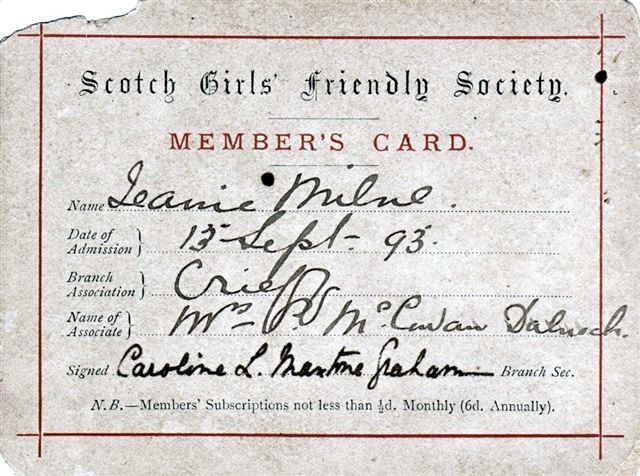 Scotch Girls' Friendly Society.
MEMBER'S CARD.
Name Jeanie Milne.
Date of Admission } 15 Sept. 93.
Branch Association } Crieff
Name of Associate } Mrs McCowan
Signed Caroline L. Maxtone Graham Branch Sec.
N.B.—Members' Subscriptions not less than ½d. Monthly (6d. Annually).